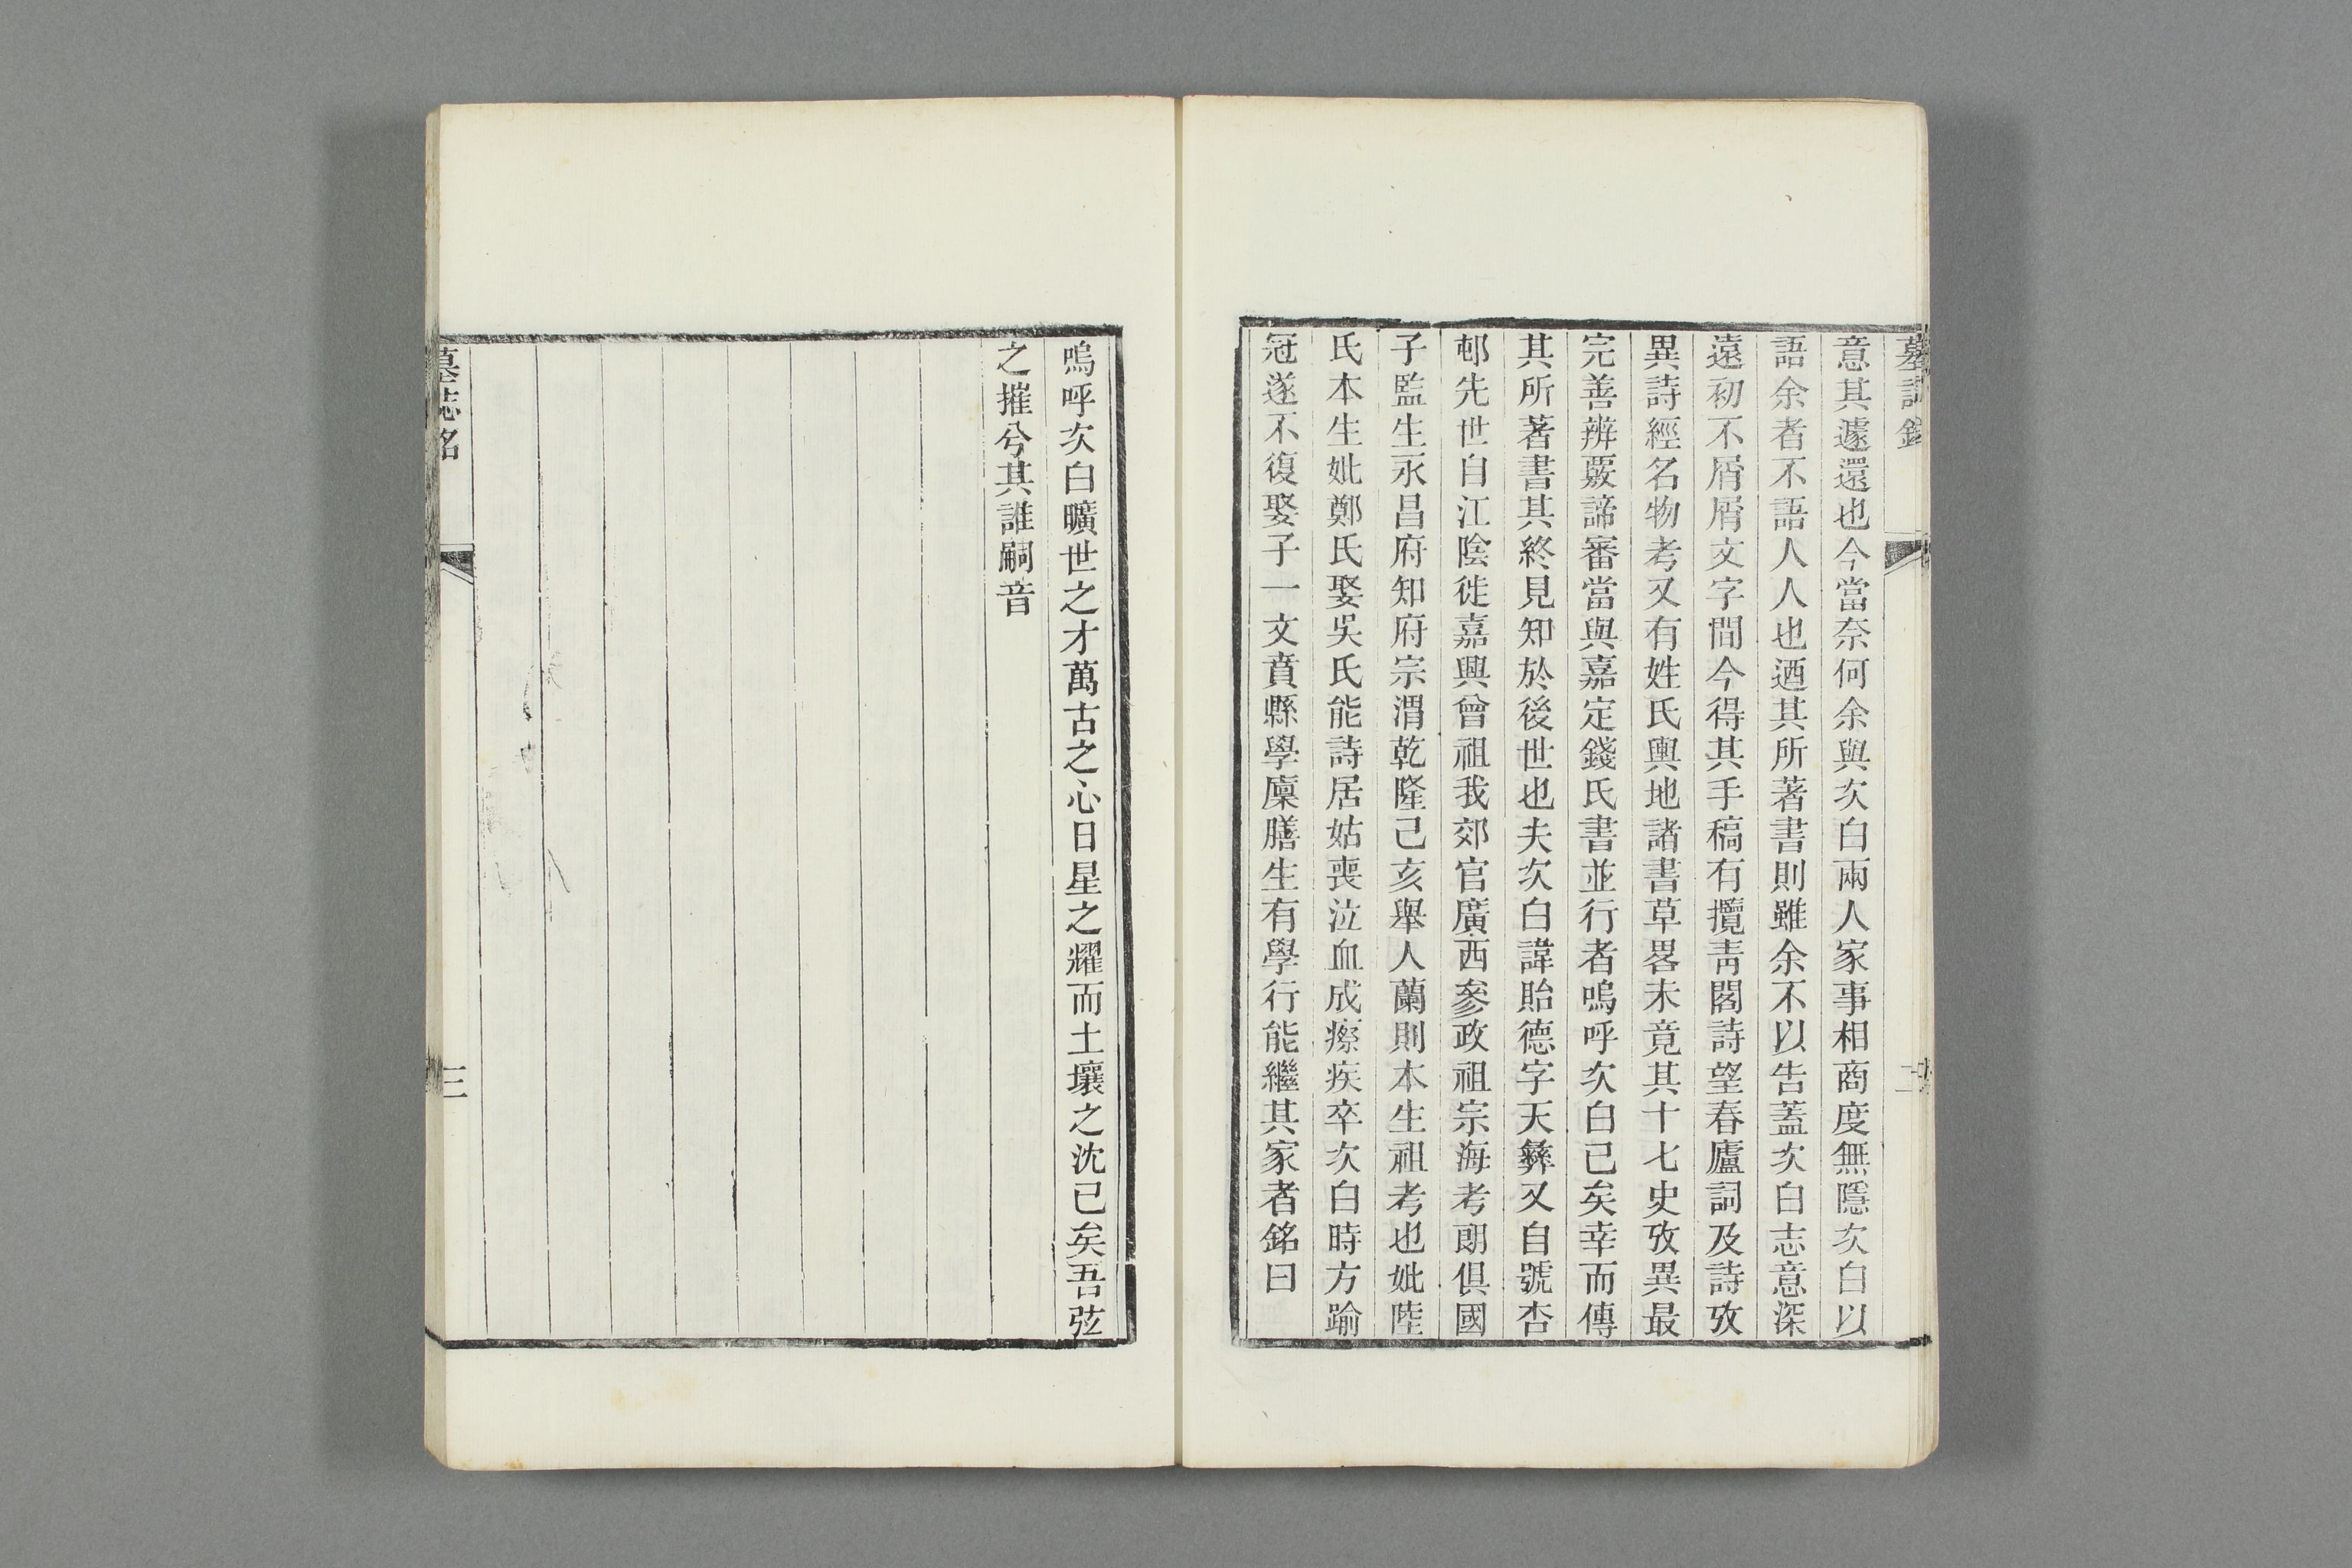 墓誌銘
二
意其遽還也今當奈何余與次白兩人家事相商度無隱次白以
語余者不語人人也迺其所著書則雖余不以告蓋次白志意深
遠初不屑屑文字間今得其手稿有攬青閣詩望春廬詞及詩攷
異詩經名物考又有姓氏輿地諸書草畧未竟其十七史攷異最
完善辨覈諦審當與嘉定錢氏書並行者嗚呼次白已矣幸而傳
其所著書其終見知於後世也夫次白諱貽德字天彝又自號杏
邨先世自江陰徙嘉興曾祖我郊官廣西參政祖宗海考朗俱國
子監生永昌府知府宗渭乾隆己亥舉人蘭則本生祖考也妣陸
氏本生妣鄭氏娶吳氏能詩居姑喪泣血成瘵疾卒次白時方踰
冠遂不復娶子一文賁縣學廩膳生有學行能繼其家者銘曰
嗚呼次白曠世之才萬古之心日星之耀而土壤之沈已矣吾弦
之摧兮其誰嗣音
墓誌銘
三